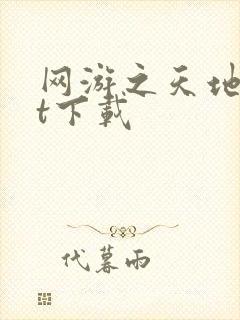 网游之天地
t下载
代暮雨